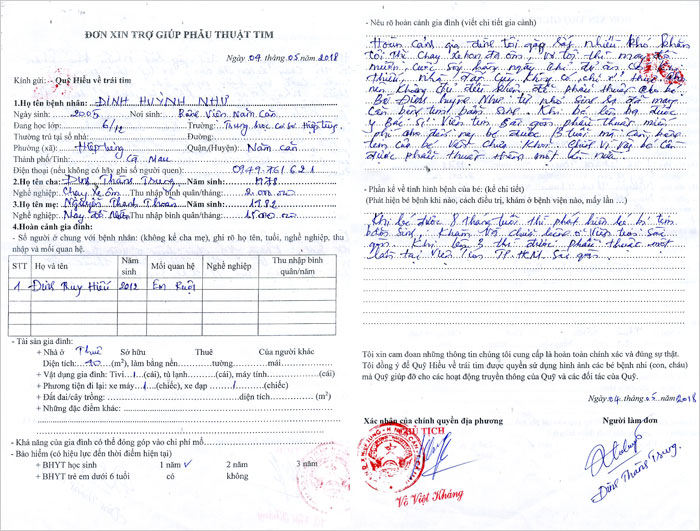 ĐƠN XIN TRỢ GIÚP PHẪU THUẬT TIM
Ngày 04 tháng 05 năm 2018
Kính gửi: - Quỹ Hiểu về trái tim
1.Họ tên bệnh nhân: ĐINH HUỲNH NHƯ
Ngày sinh: 2005 Nơi sinh: Bệnh Viện Năm Căn
Đang học lớp: 6/12 Trường: Trung học cơ sở Hiệp Tùng
Thường trú tại số nhà: Đường:
Phường (xã): Hiệp Tùng Quận,(Huyện): Năm Căn
Thành phố/Tỉnh: Cà Mau
Điện thoại (nếu không có hãy ghi số người quen): 0949 761 621
2.Họ tên cha: Đinh Thành Trung Năm sinh: 1978
Nghề nghiệp: Chạy xe ôm Thu nhập bình quân/tháng: 2.000.000
3.Họ tên mẹ: Nguyễn Thanh Thoản Năm sinh: 1982
Nghề nghiệp: May đồ Thu nhập bình quân/tháng:
4.Hoàn cảnh gia đình:
- Số người ở chung với bệnh nhân: (không kể cha mẹ), ghi rõ họ tên, tuổi, nghề nghiệp, thu
nhập và mối quan hệ.
STT Họ và tên Năm sinh Mối quan hệ Nghề nghiệp Thu nhập bình quân/năm
1 Đinh Huy Hiếu 2012 Em Ruột
- Tài sản gia đình:
+ Nhà ở Thuê Sở hữu Thuê Của người khác
Diện tích: (m²), làm bằng nền tường mái
+ Phương tiện làm việc: Tivi 1 (cái), tủ lạnh (cái), máy tính (cái)
+ Phương tiện đi lại: xe máy 1 (chiếc), xe đạp / (chiếc)
+ Đất đai/cây trồng: diện tích (m²)
+ Những đặc điểm khác:
- Khả năng của gia đình có thể đóng góp vào chi phí mổ
- Bảo hiểm (có hiệu lực đến thời điểm hiện tại)
+ BHYT học sinh 1 năm ✓ 2 năm 3 năm
+ BHYT trẻ em dưới 6 tuổi có không
- Nêu rõ hoàn cảnh gia đình (viết chi tiết gia cảnh)
Hoàn cảnh gia đình tôi gặp rất nhiều khó khăn
tôi thì chạy xe hon đa ôm, vợ tôi thì may đồ
mướn, cuộc sống hàng ngày chỉ đủ ăn
thiếu, nhà
nên không đủ điều kiện để phẫu thuật cho bé
Bé Đinh Huỳnh Như từ nhỏ sinh ra đã mang
căn bệnh tim bẩm sinh. Khi bé lên ba được
Bác Sĩ Viện tim Sài Gòn phẫu thuật miễn
phí cho đến nay bé được 13 tuổi mà căn bệnh
tim của bé vẫn chưa khỏi. Chính vì vậy bé cần
được phẫu thuật thêm một lần nữa.
- Phần kể về tình hình bệnh của bé: (kể chi tiết)
(Phát hiện bé bệnh khi nào, cách điều trị, khám ở bệnh viện nào, mấy lần …)
Khi bé được 8 tháng tuổi thì phát hiện bé bị tim
bẩm sinh, khám và chữa bệnh ở Viện tim Sài
gòn. Khi lên 3 thì được phẫu thuật một
lần tại Viện Tim TP.HCM Sài gòn.
Tôi xin cam đoan những thông tin chúng tôi cung cấp là hoàn toàn chính xác và đúng sự thật.
Tôi đồng ý để Quỹ Hiểu về trái tim được quyền sử dụng hình ảnh các bé bệnh nhi (con, cháu)
mà Quỹ giúp đỡ cho các hoạt động truyền thông của Quỹ và các đối tác của Quỹ.
Ngày 04 tháng 05 năm 2018
Xác nhận của chính quyền địa phương Người làm đơn
CHỦ TỊCH
Võ Việt Kháng
Đinh Thành Trung